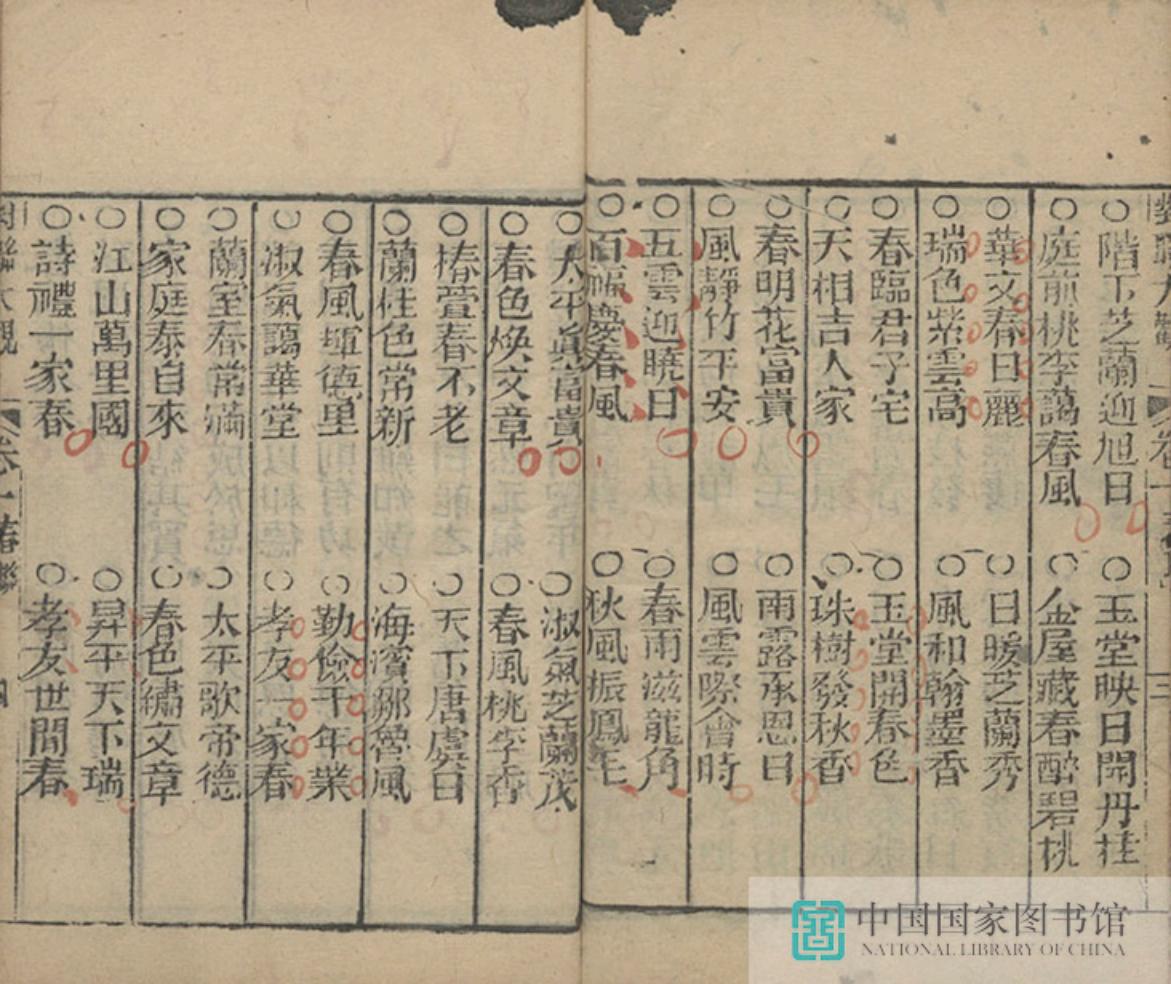 三
○階下芝蘭迎旭日 ○玉堂映日開丹桂
○庭前桃李藹春風 ○金屋藏春醉碧桃
○華文春日麗 ○日暖芝蘭秀
○瑞色紫雲高 ○風和翰墨香
○春臨君子宅 ○玉堂開春色
○天相吉人家 ○珠樹發秋香
○春明花富貴 ○雨露承恩日
○風靜竹平安 ○風雲際會時
○五雲迎曉日 ○春雨滋龍角
○百福慶春風 ○秋風振鳳毛
○太平眞富貴 ○淑氣芝蘭茂
○春色煥文章 ○春風桃李香
○椿萱春不老 ○天下唐虞日
○蘭桂色常新 ○海濱鄒魯風
○春風暉德里 ○勤儉千年業
○淑氣藹華堂 ○孝友一家春
○蘭室春常滿 ○太平歌帝德
○家庭泰自來 ○春色繡文章
○江山萬里國 ○昇平天下瑞
○詩禮一家春 ○孝友世間春
對聯大觀 卷一 春聯 四
中国国家图书馆
NATIONAL LIBRARY OF CHINA